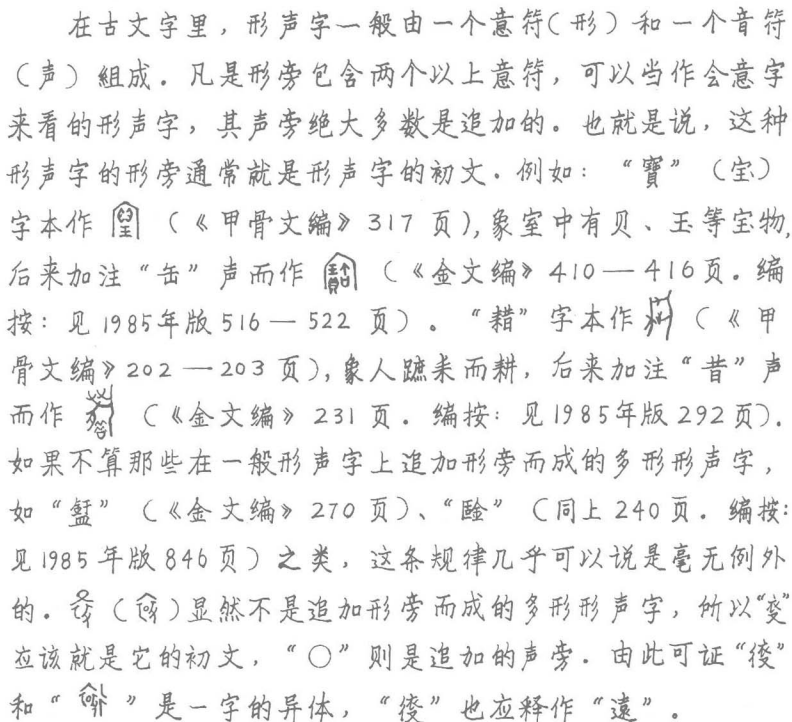 在古文字里，形声字一般由一个意符（形）和一个音符
（声）組成．凡是形旁包含两个以上意符，可以当作会意字
来看的形声字，其声旁绝大多数是追加的．也就是说，这种
形声字的形旁通常就是形声字的初文．例如：“寶”（宝）
字本作（《甲骨文编》317页），象室中有贝、玉等宝物，
后来加注“缶”声而作（《金文编》410—416页．编
按：见1985年版516—522页）。“耤”字本作（《甲
骨文编》202—203页），象人蹠耒而耕，后来加注“昔”声
而作（《金文编》231页．编按：见1985年版292页）．
如果不算那些在一般形声字上追加形旁而成的多形形声字，
如“”（《金文编》270页）、“”（同上240页．编按：
见1985年版846页）之类，这条规律几乎可以说是毫无例外
的．（）显然不是追加形旁而成的多形形声字，所以“”
应该就是它的初文，“〇”则是追加的声旁．由此可证“”
和“”是一字的异体，“”也应释作“遠”．